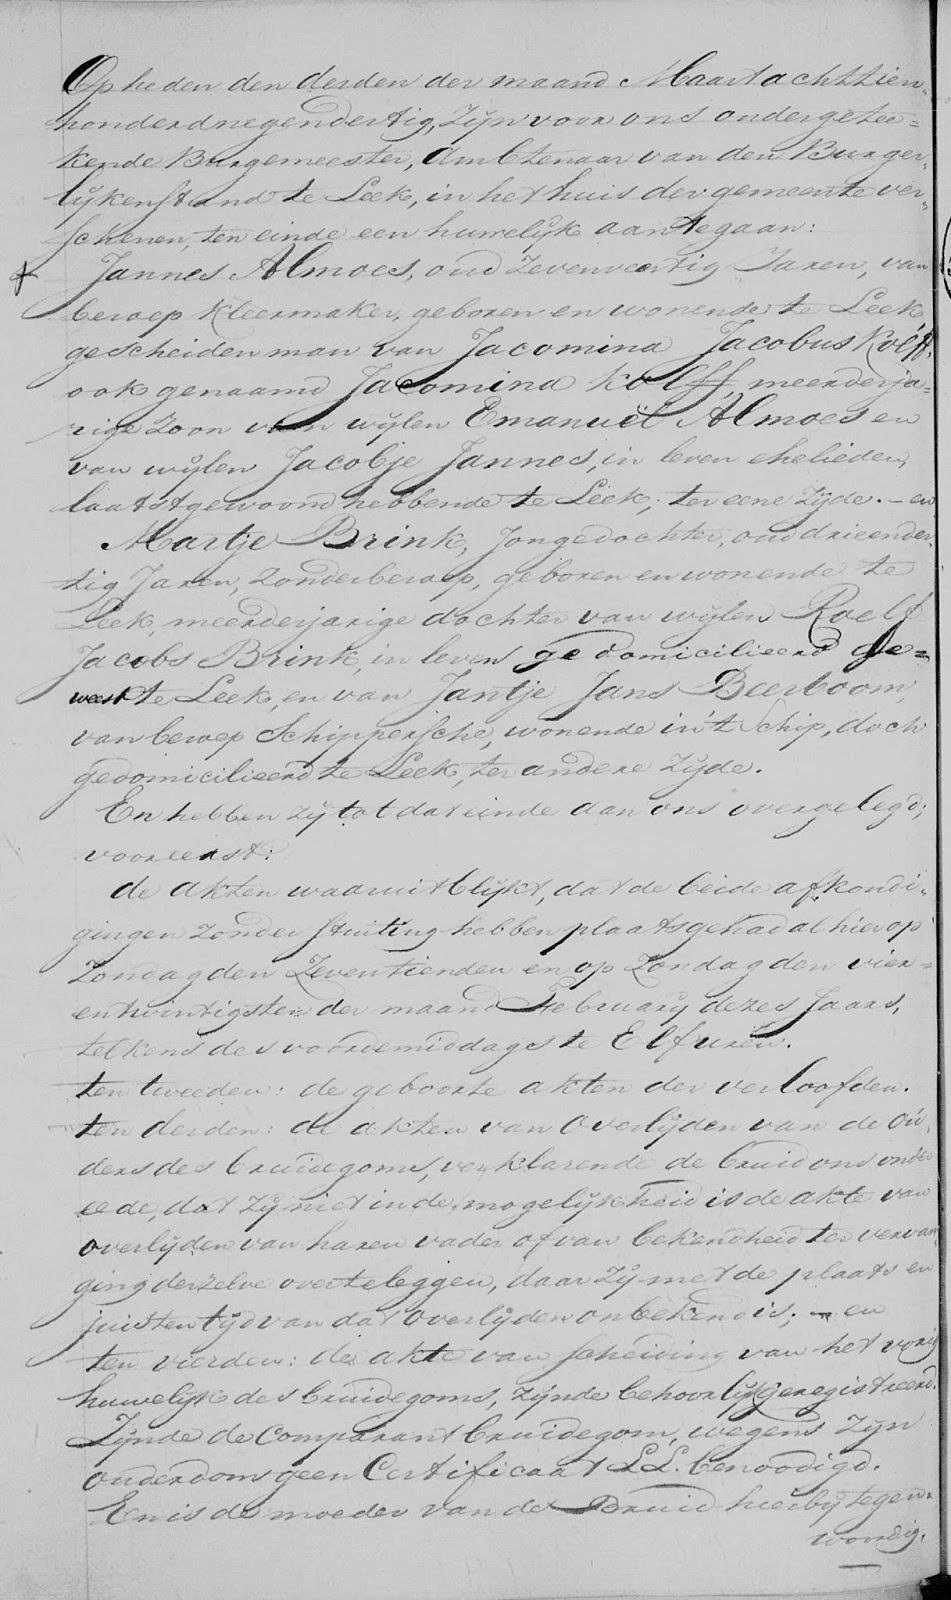 Op heden den derden der maand Maart achttien-
honderdnegendertig, zijn voor ons ondergetee=
kende Burgemeester, Ambtenaar van den Burger-
lijkenstand te Leek, in het huis der gemeente ver-
schenen, ten einde een huwelijk aantegaan:
Jannes Almoes, oud zevenveertig Jaren, van
beroep kleermaker, geboren en wonende te Leek
gescheiden man van Jacomina Jacobus Kolff,
ook genaamd Jacomina Kolff, meerderja-
rige Zoon van wijlen Emanuël Almoes en
van wijlen Jacobje Jannes, in leven ehelieden,
laatst gewoond hebbende te Leek, ter eene zijde. – en
Martje Brink, Jongedochter, oud drieender-
tig Jaren, zonder beroep, geboren en wonende te
Leek, meerderjarige dochter van wijlen Roelf
Jacobs Brink, in leven gedomicilieerd ge=
weest te Leek, en van Jantje Jans Beerboom,
van beroep Schippersche, wonende in 't Schip, doch
gedomicilieerd te Leek, ter andere zijde.
En hebben zij tot dat einde aan ons overgelegd;
vooreerst:
de akten waaruit blijkt, dat de beide afkondi-
gingen zonder stuiting hebben plaats gehad alhier op
Zondag den Zeventienden en op Zondag den vier-
entwintigsten der maand February dezes Jaars,
telkens des voordemiddags te Elf uren.
ten tweeden: de geboorte akten der verloofden.
ten derden: de akten van Overlijden van de Ou-
ders des bruidegoms, verklarende de bruid ons onder
eede, dat zij niet in de mogelijkheid is de akte van
overlijden van haren vader of van bekendheid ter vervan-
ging derzelve overteleggen, daar zij met de plaats en
juisten tijd van dat overlijden onbekend is; – en
ten vierden: de akte van scheiding van het vorig
huwelijk des bruidegoms, zijnde behoorlijk geregistreerd.
Zijnde de Comparant bruidegom, wegens zijn
ouderdom geen Certificaat LL. benoodigd.
En is de moeder van de Bruid hierbij tegen-
woordig.